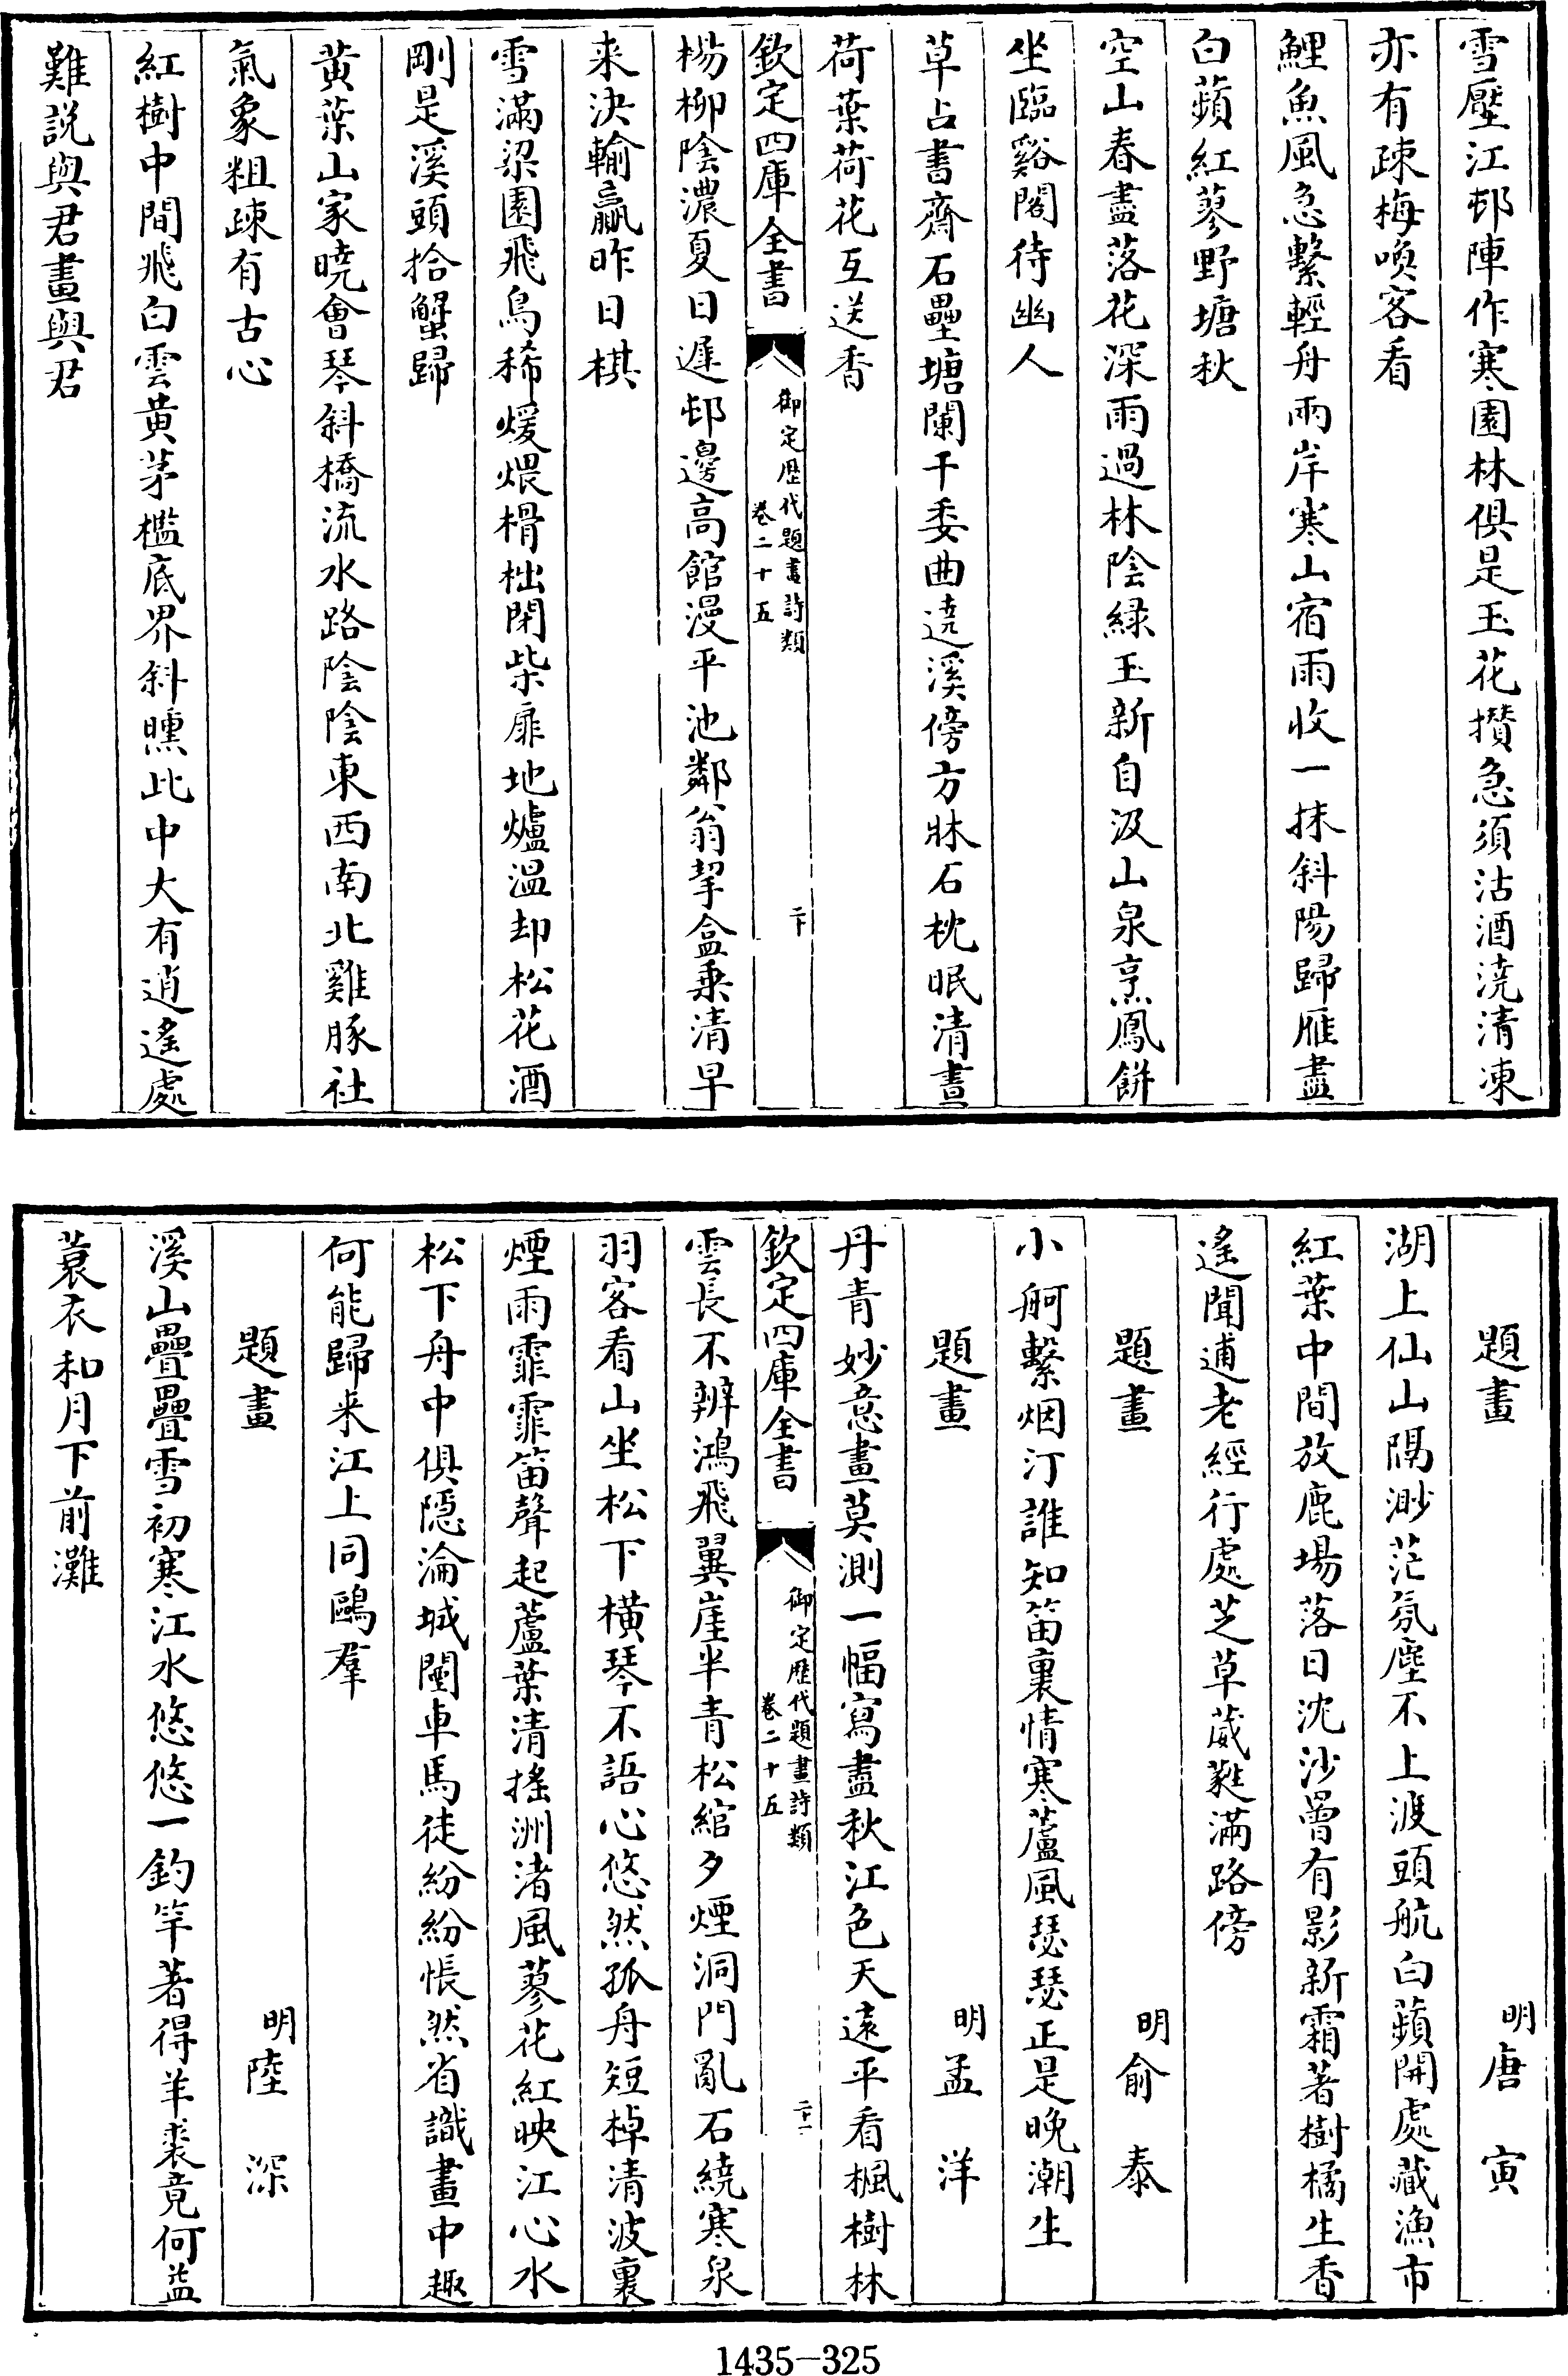 雪壓江邨陣作寒園林俱是玉花攢急須沽酒澆清凍
亦有疎梅喚客看
鯉魚風急繫輕舟兩岸寒山宿雨收一抹斜陽歸雁盡
白蘋紅蓼野塘秋
空山春盡落花深雨過林陰緑玉新自汲山泉烹鳳餅
坐臨谿閣待幽人
草占書齋石壘塘闌干委曲遶溪傍方牀石枕眠清晝
荷葉荷花互送香
欽定四庫全書
御定歴代題畫詩類
卷二十五
二十
楊柳陰濃夏日遲邨邊高館漫平池鄰翁挈盒乗清早
来決輸贏昨日棋
雪滿梁園飛鳥稀煖煨榾柮閉柴扉地爐温却松花酒
剛是溪頭拾蟹歸
黄葉山家曉會琴斜橋流水路陰陰東西南北雞豚社
氣象粗疎有古心
紅樹中間飛白雲黄茅檻底界斜曛此中大有逍遙處
難説與君畫與君
題畫
明唐寅
湖上仙山隔渺茫氛塵不上渡頭航白蘋開處藏漁市
紅葉中間放鹿場落日沈沙罾有影新霜著樹橘生香
遙聞逋老經行處芝草葳蕤滿路傍
題畫
明俞泰
小舸繫烟汀誰知笛裏情寒蘆風瑟瑟正是晚潮生
題畫
明孟洋
丹青妙意畫莫測一幅寫盡秋江色天遠平看楓樹林
欽定四庫全書
御定歴代題畫詩類
卷二十五
二十一
雲長不辨鴻飛翼崖半青松綰夕煙洞門亂石繞寒泉
羽客看山坐松下横琴不語心悠然孤舟短棹清波裏
煙雨霏霏笛聲起蘆葉清摇洲渚風蓼花紅映江心水
松下舟中俱隱淪城闉車馬徒紛紛悵然省識畫中趣
何能歸来江上同鷗羣
題畫
明陸深
溪山疊疊雪初寒江水悠悠一釣竿著得羊裘竟何益
蓑衣和月下前灘
1435-325